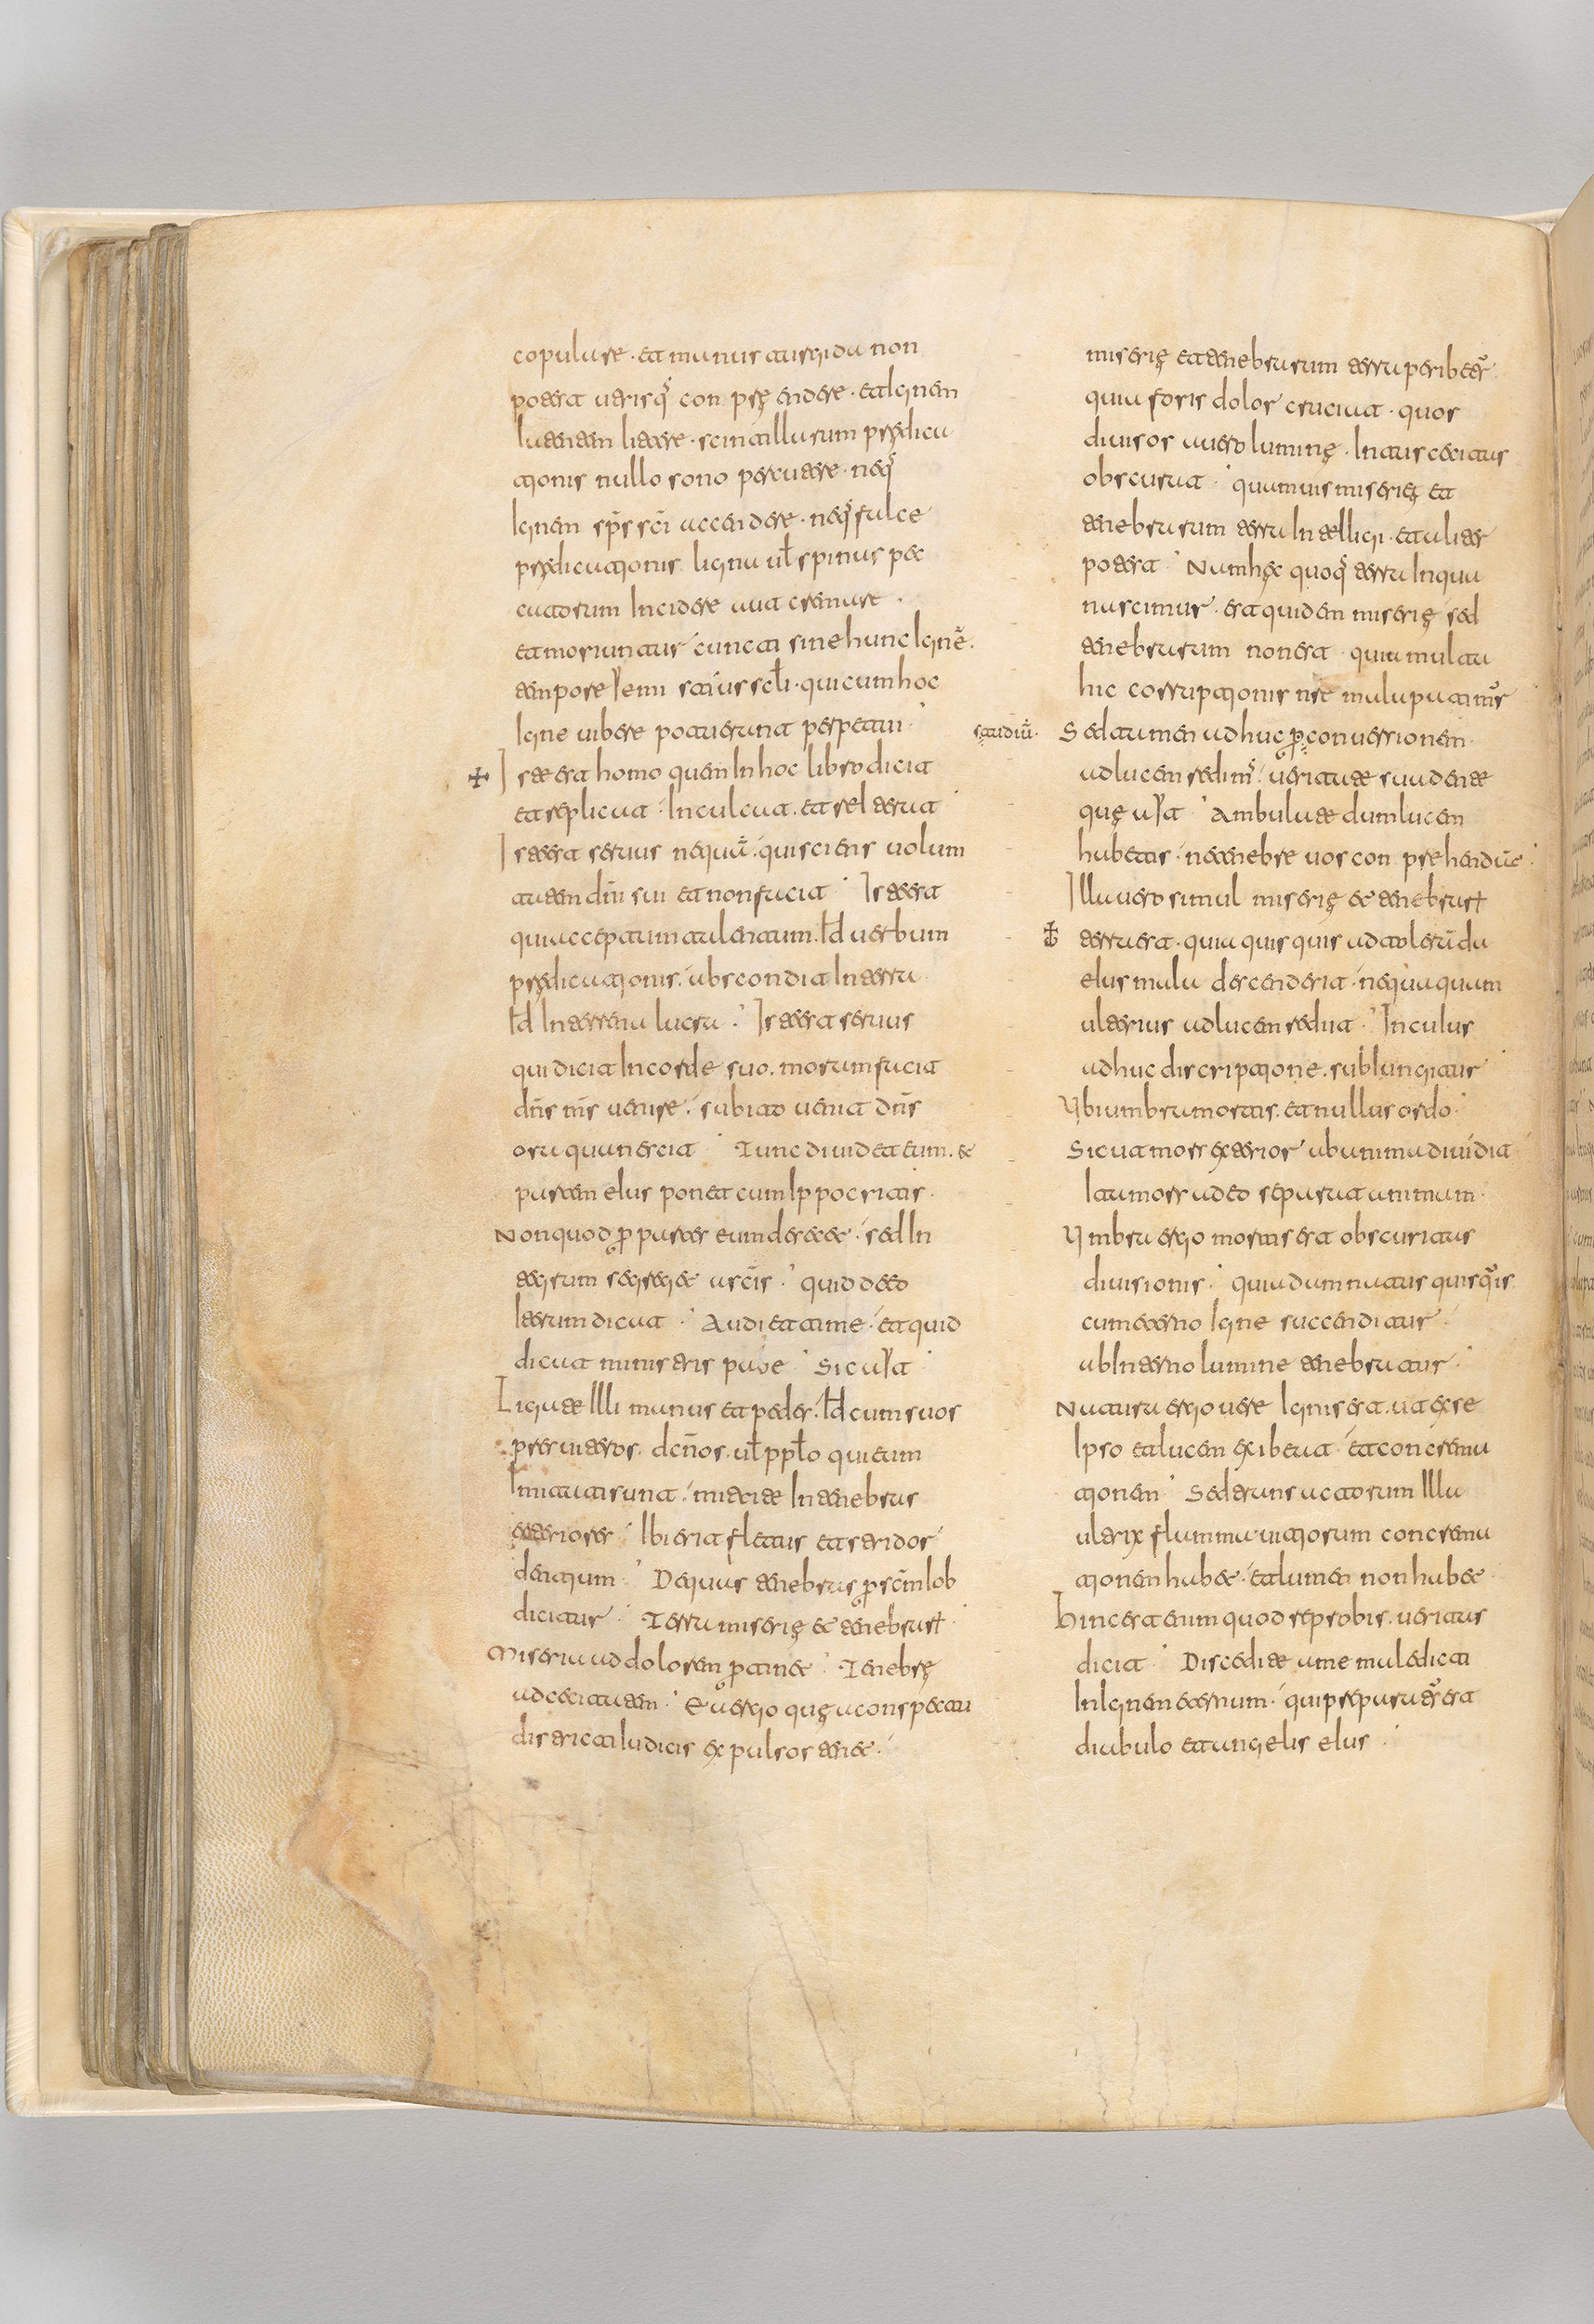 copulare · et manus a frigida non
potest uterisq; con prę endere · et ignem
latentem lictere · scintillarum prędica
tionis nullo sono percutere · neq;
ignem sp̄s sc̄i accendere · neq; falce
prędicationis ligna ul̄ spinas pec
catorum incidere aut cremare ·
et moriuntur cuncti sine hunc ignē ·
tempore yemi status scl̄i · qui cum hoc
igne uibere potuerunt perpetui ·
✠ Iste est homo quem in hoc libro dicit
et replicat · inculcat · et reiterat
Ist est seruus nequā · qui sciens uolum
tatem dn̄i sui et non facit · Ist est
qui acceptum talentum · id uerbum
prędicationis · abscondit in terra
id in terrena lucra · Ist est seruus
qui dicit in corde suo · moram facit
dn̄s m̄s uenire · subito uenit dn̄s
ora qua nescit · Tunc diuidet eum · et
partem eius ponet cum ippocritis ·
Non quod per partes eum dessecet · sed in
tegrum segreget a sc̄is · quid de eo
iterum dicat · Audi et time · et quid
dicat ministris pabe · Sic ait ·
Ligate illi manus et pedes · id cum suos
presuiteros · dcn̄os · ul̄ ppl̄o qui eum
imitati sunt · mittite in tenebras
exteriores · Ibi erit fletus et stridor
dentium · De quas tenebras per sc̄m iob
dicitur · Terra miserię et tenebrarum ·
Miseria ad dolorem pertinet · Tenebrę
ad cecitatem · Ea ergo quę a conspectu
districti iudicis expulsos tenet ·
miserię et tenebrarum terra peribetur
quia foris dolor cruciat · quos
diuisos a uero luminę · intus cecitas
obscurat · quamuis miserię et
tenebrarum terra intelligi · et aliter
potest · Nam hęc quoq; terra in qua
nascimur · est quidem miserię sed
tenebrarum non est · quia multa
hic corruptionis n̄re mala patimur
Sed tamen adhuc per conuersionem
ad lucem redimus · ueritate suadente
quę ait · Ambulate dum lucem
habetis · ne tenebre uos con prehendāt
Illa uero simul miserię et tenebrarum
terra est · quia quis quis ad tolerāda
eius mala descenderit · nequaquam
ulterius ad lucem rediit · In cuius
adhuc discriptione · subiungitur
Ubi umbra mortis · et nullus ordo ·
Sicut mors exterior ab anima diuidit
ita mors ad eo separat animum ·
Umbra ergo mortis est obscuritas
diuisionis · quia damnatus quisquis
cum eterno igne succenditur ·
ab interno lumine tenebratur ·
Natura ergo uere ignis est · ut ex se
ipso et lucem exibeat · et concrema
tionem · Sed transactorum illa
ultrix flamma · uitiorum concrema
tionem habet · et lumen non habet
Hinc est enim quod reprobis · ueritas
dicit · Discedite a me maledicti
in ignem eternum · qui preparatus est
diabulo et angelis eius ·